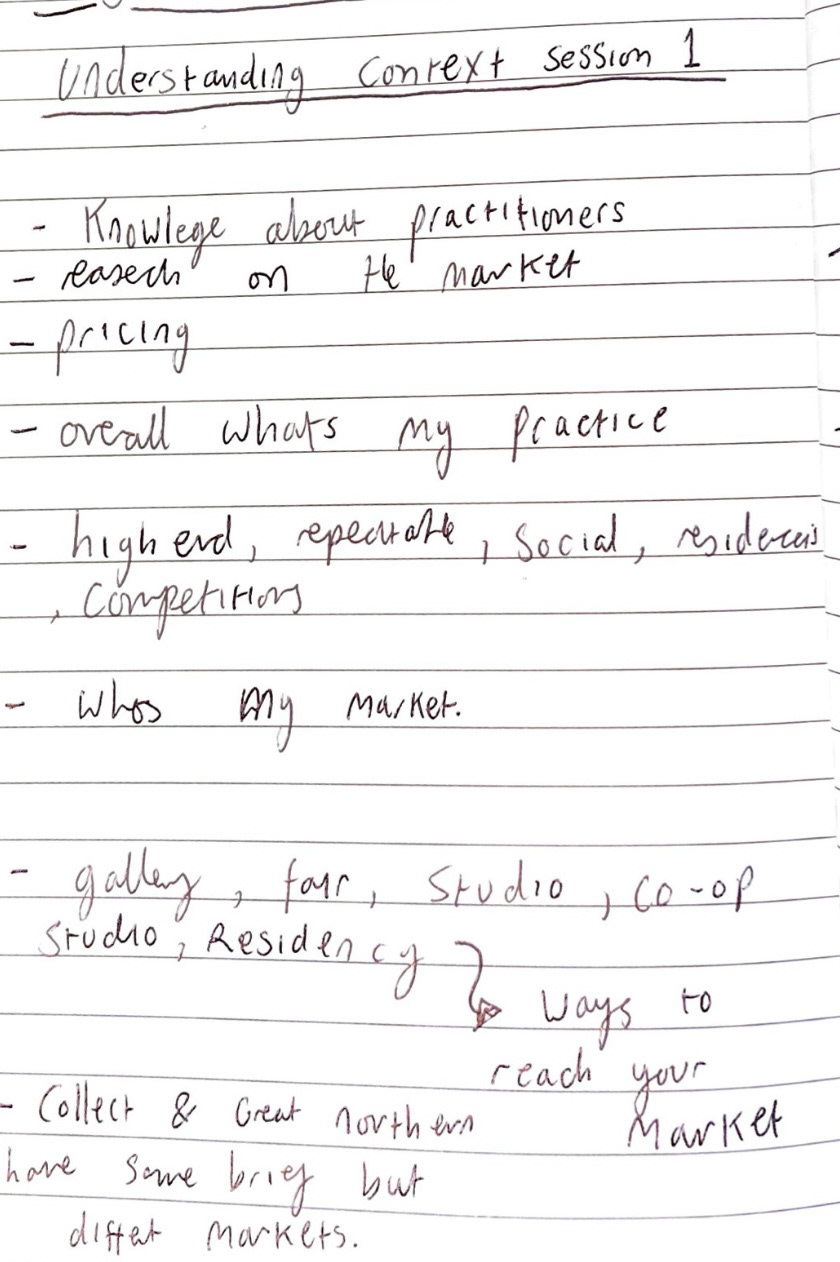 Understanding Context session 1
- Knowlege about practitioners
- reaserch on the market
- pricing
- overall whats my practice
- high end, repeatable, Social, residences
, Competitions
- Whos my market.
- gallery, fair, Studio, co-op
Studio, Residency
Ways to
reach your
Market
- Collect & Great northern
have same brief but
differt markets.